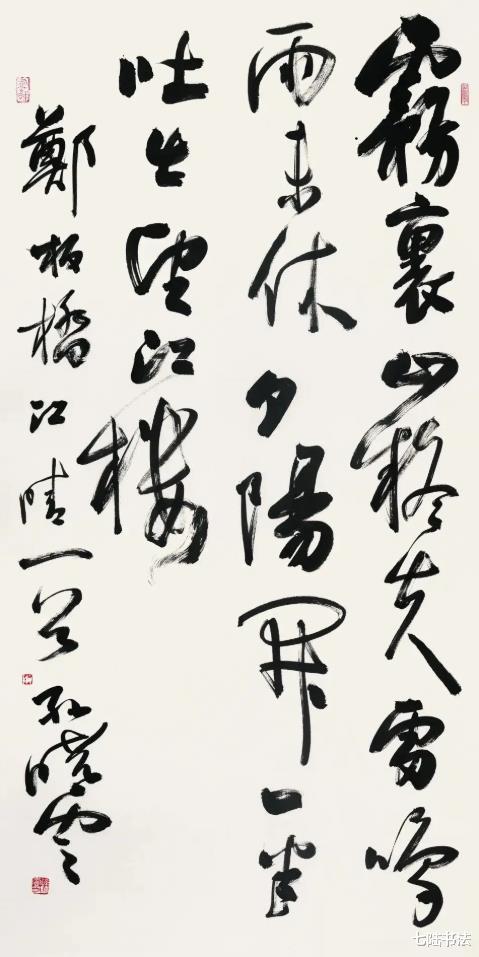 霧裹山疑失雷鳴
雨未休夕陽開一半
吐出望江樓
鄭板橋江晴一首 孔曉雲
七陆书法